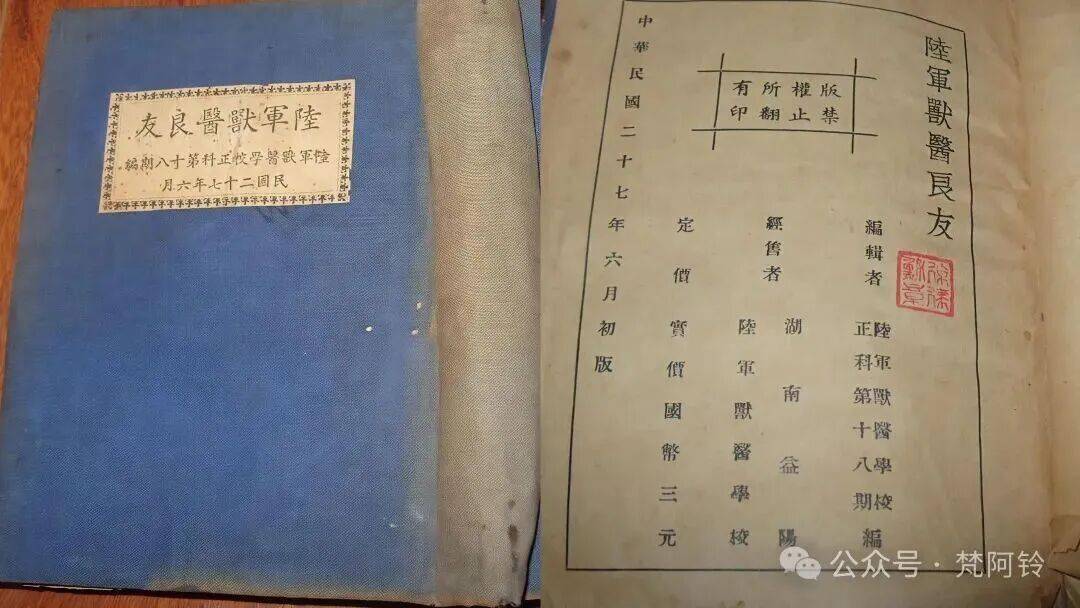 陸軍獸醫良友
陸軍獸醫學校正科第十八期編
民國二十七年六月
陸軍獸醫良友
編輯者 陸軍獸醫學校正科第十八期編
經售者 湖南益陽陸軍獸醫學校
定價 實價國幣三元
版權所有
禁止翻印
中華民國二十七年六月初版
公众号·梵阿铃